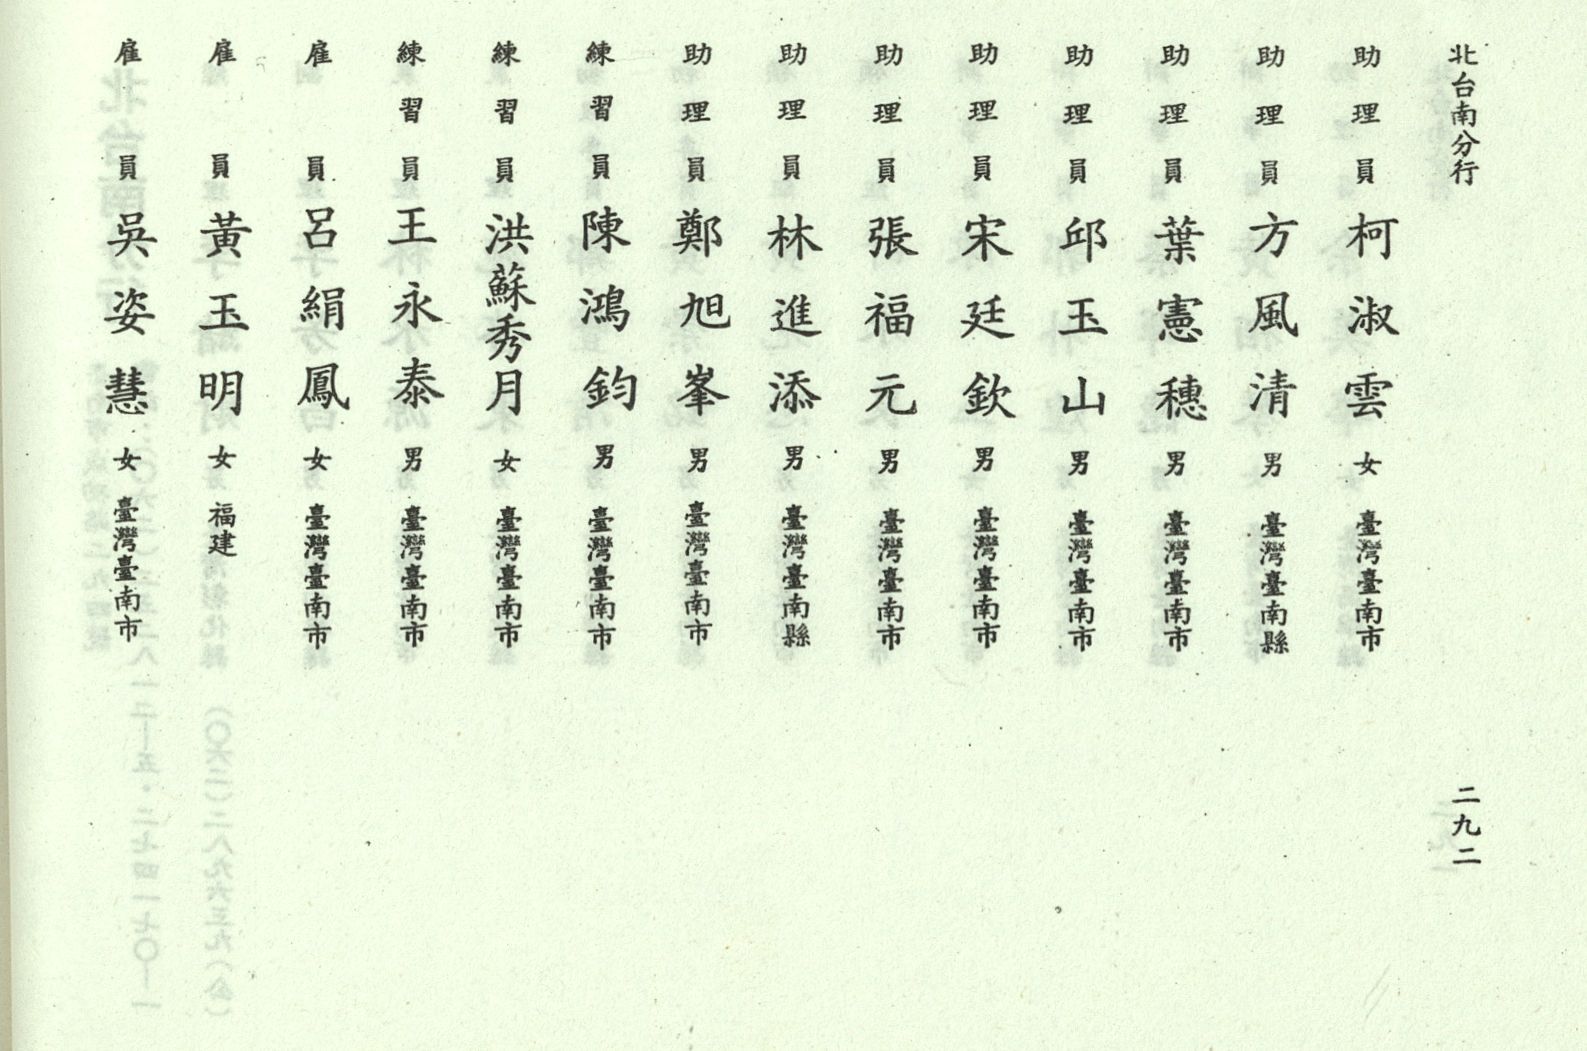 北台南分行 二九二
助理員 柯淑雲 女 臺灣臺南市
助理員 方風清 男 臺灣臺南縣
助理員 葉憲穗 男 臺灣臺南市
助理員 邱玉山 男 臺灣臺南市
助理員 宋廷欽 男 臺灣臺南市
助理員 張福元 男 臺灣臺南市
助理員 林進添 男 臺灣臺南縣
助理員 鄭旭峯 男 臺灣臺南市
練習員 陳鴻鈞 男 臺灣臺南市
練習員 洪蘇秀月 女 臺灣臺南市
練習員 王永泰 男 臺灣臺南市
雇員 呂絹鳳 女 臺灣臺南市
雇員 黃玉明 女 福建
雇員 吳姿慧 女 臺灣臺南市